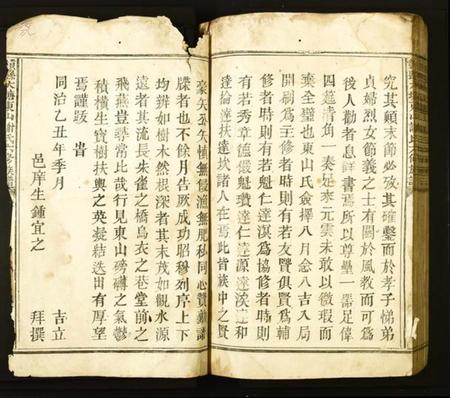 究其顛末節必攷其確鑿而於孝子悌弟
貞婦烈女節義之士有關於風教而可為
後人勸者息
書焉所以尊
一
足偉
四筵清角一奏
元雲未敢以微瑕而
棄全璧也東山氏僉擇八月念八吉入局
開刷為主修者時則有若友賢俱賢為輔
修者時則有若魁仁達淇為協修者時則
有若秀章德儼魁瓚達仁達源達溪達和
達倫達扶達坎諸人在焉此皆族中之賢
豪矣
矣慎無侵漁無肥私同心贊勷譜
牒者也不餘月告厥成功昭穆列序上下
均辨如樹木然根深者其末茂如觀水源
遠者其流長朱雀之橋烏衣之巷堂前之
飛燕豈尋常比哉行見東山磅礴之氣鬱
積橫生寶樹扶輿之英凝結迭出有厚望
焉謹跋
旹
同治乙丑年季月
吉立
邑庠生鍾宜之
拜撰